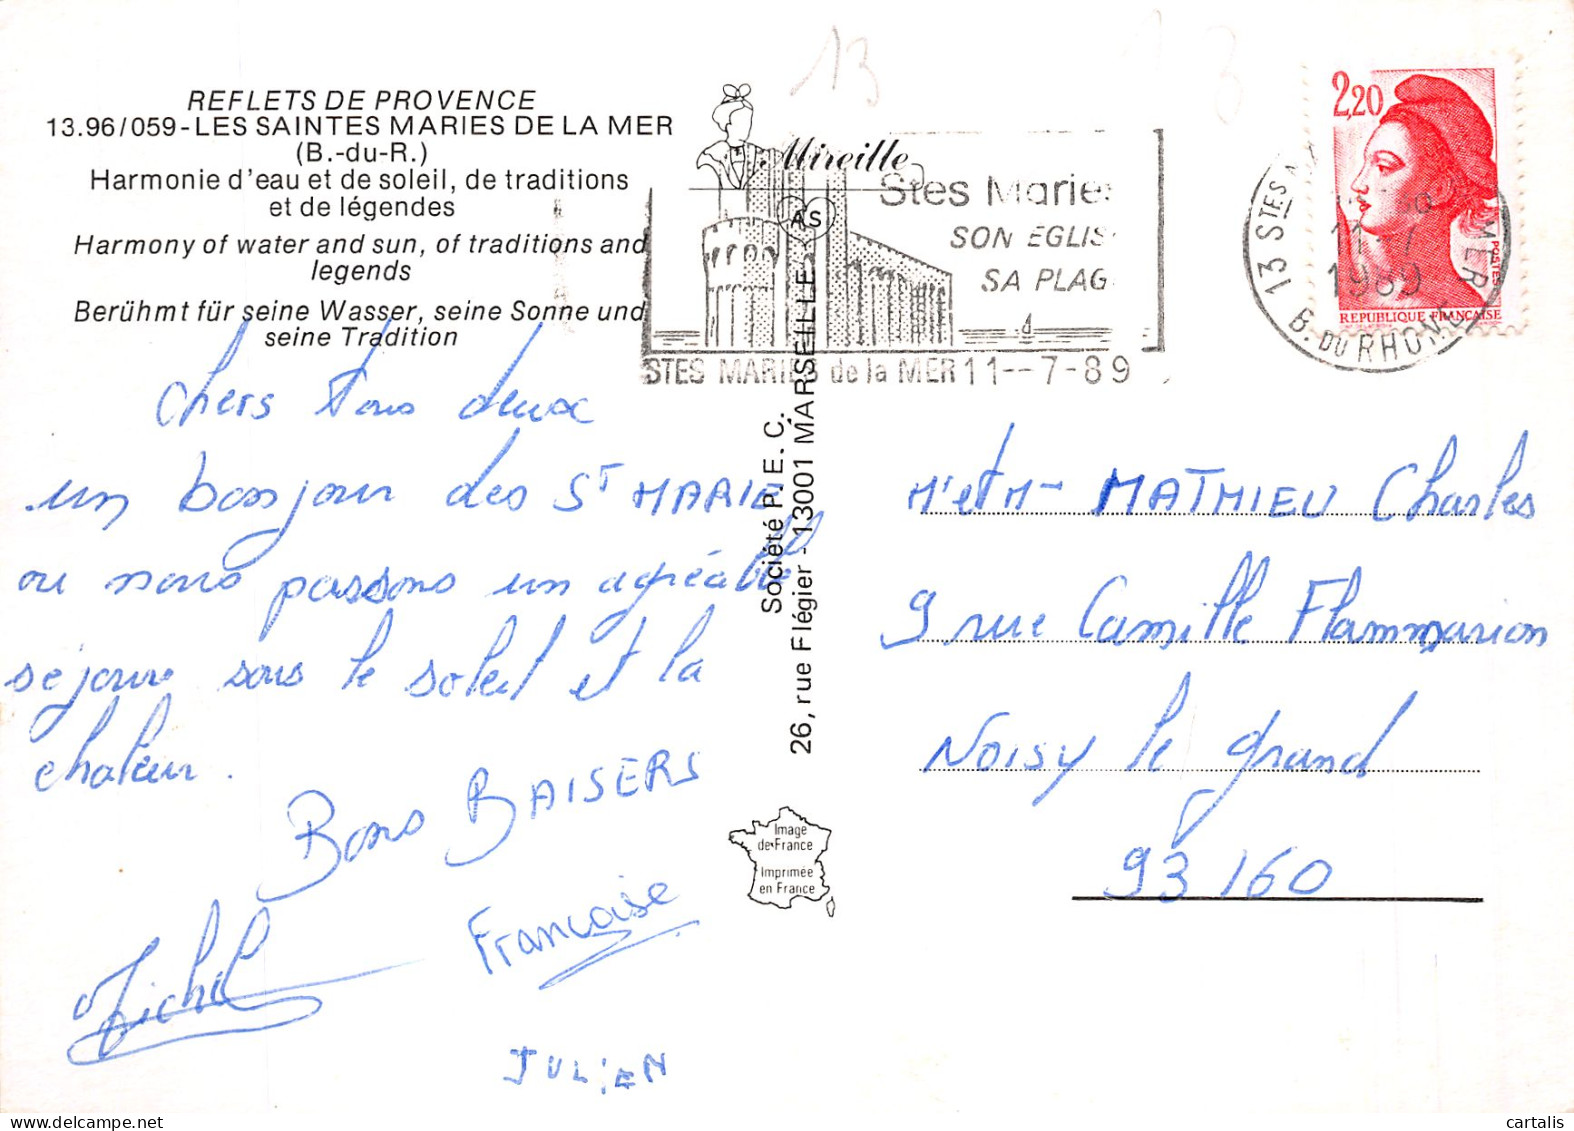 REFLETS DE PROVENCE
13.96/059-LES SAINTES MARIES DE LA MER
(B.-du-R.)
Harmonie d'eau et de soleil, de traditions
et de légendes
Harmony of water and sun, of traditions and
legends
Berühmt für seine Wasser, seine Sonne und
seine Tradition
Chers tous deux
un bonjour des St MARIE
ou nous passons un agréable
séjour sous le soleil et la
chaleur.
Bons BAISERS
Francoise
Michel
JULIEN
13
Mireille
AS
Stes Maries
SON EGLIS
SA PLAG
STES MARIES de la MER 11--7-89
Société P. E. C.
26, rue Flégier - 13001 MARSEILLE
Image
de France
Imprimée
en France
2,20
POSTES
REPUBLIQUE FRANÇAISE
13 STES MER
11-7
1989
B. DU RHONE
Mr et Me MATHIEU Charles
9 rue Camille Flammarion
NOISY le grand
93160
cartalis